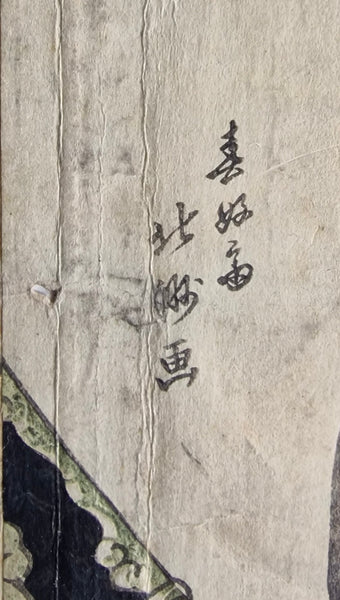 春好斎
北洲画